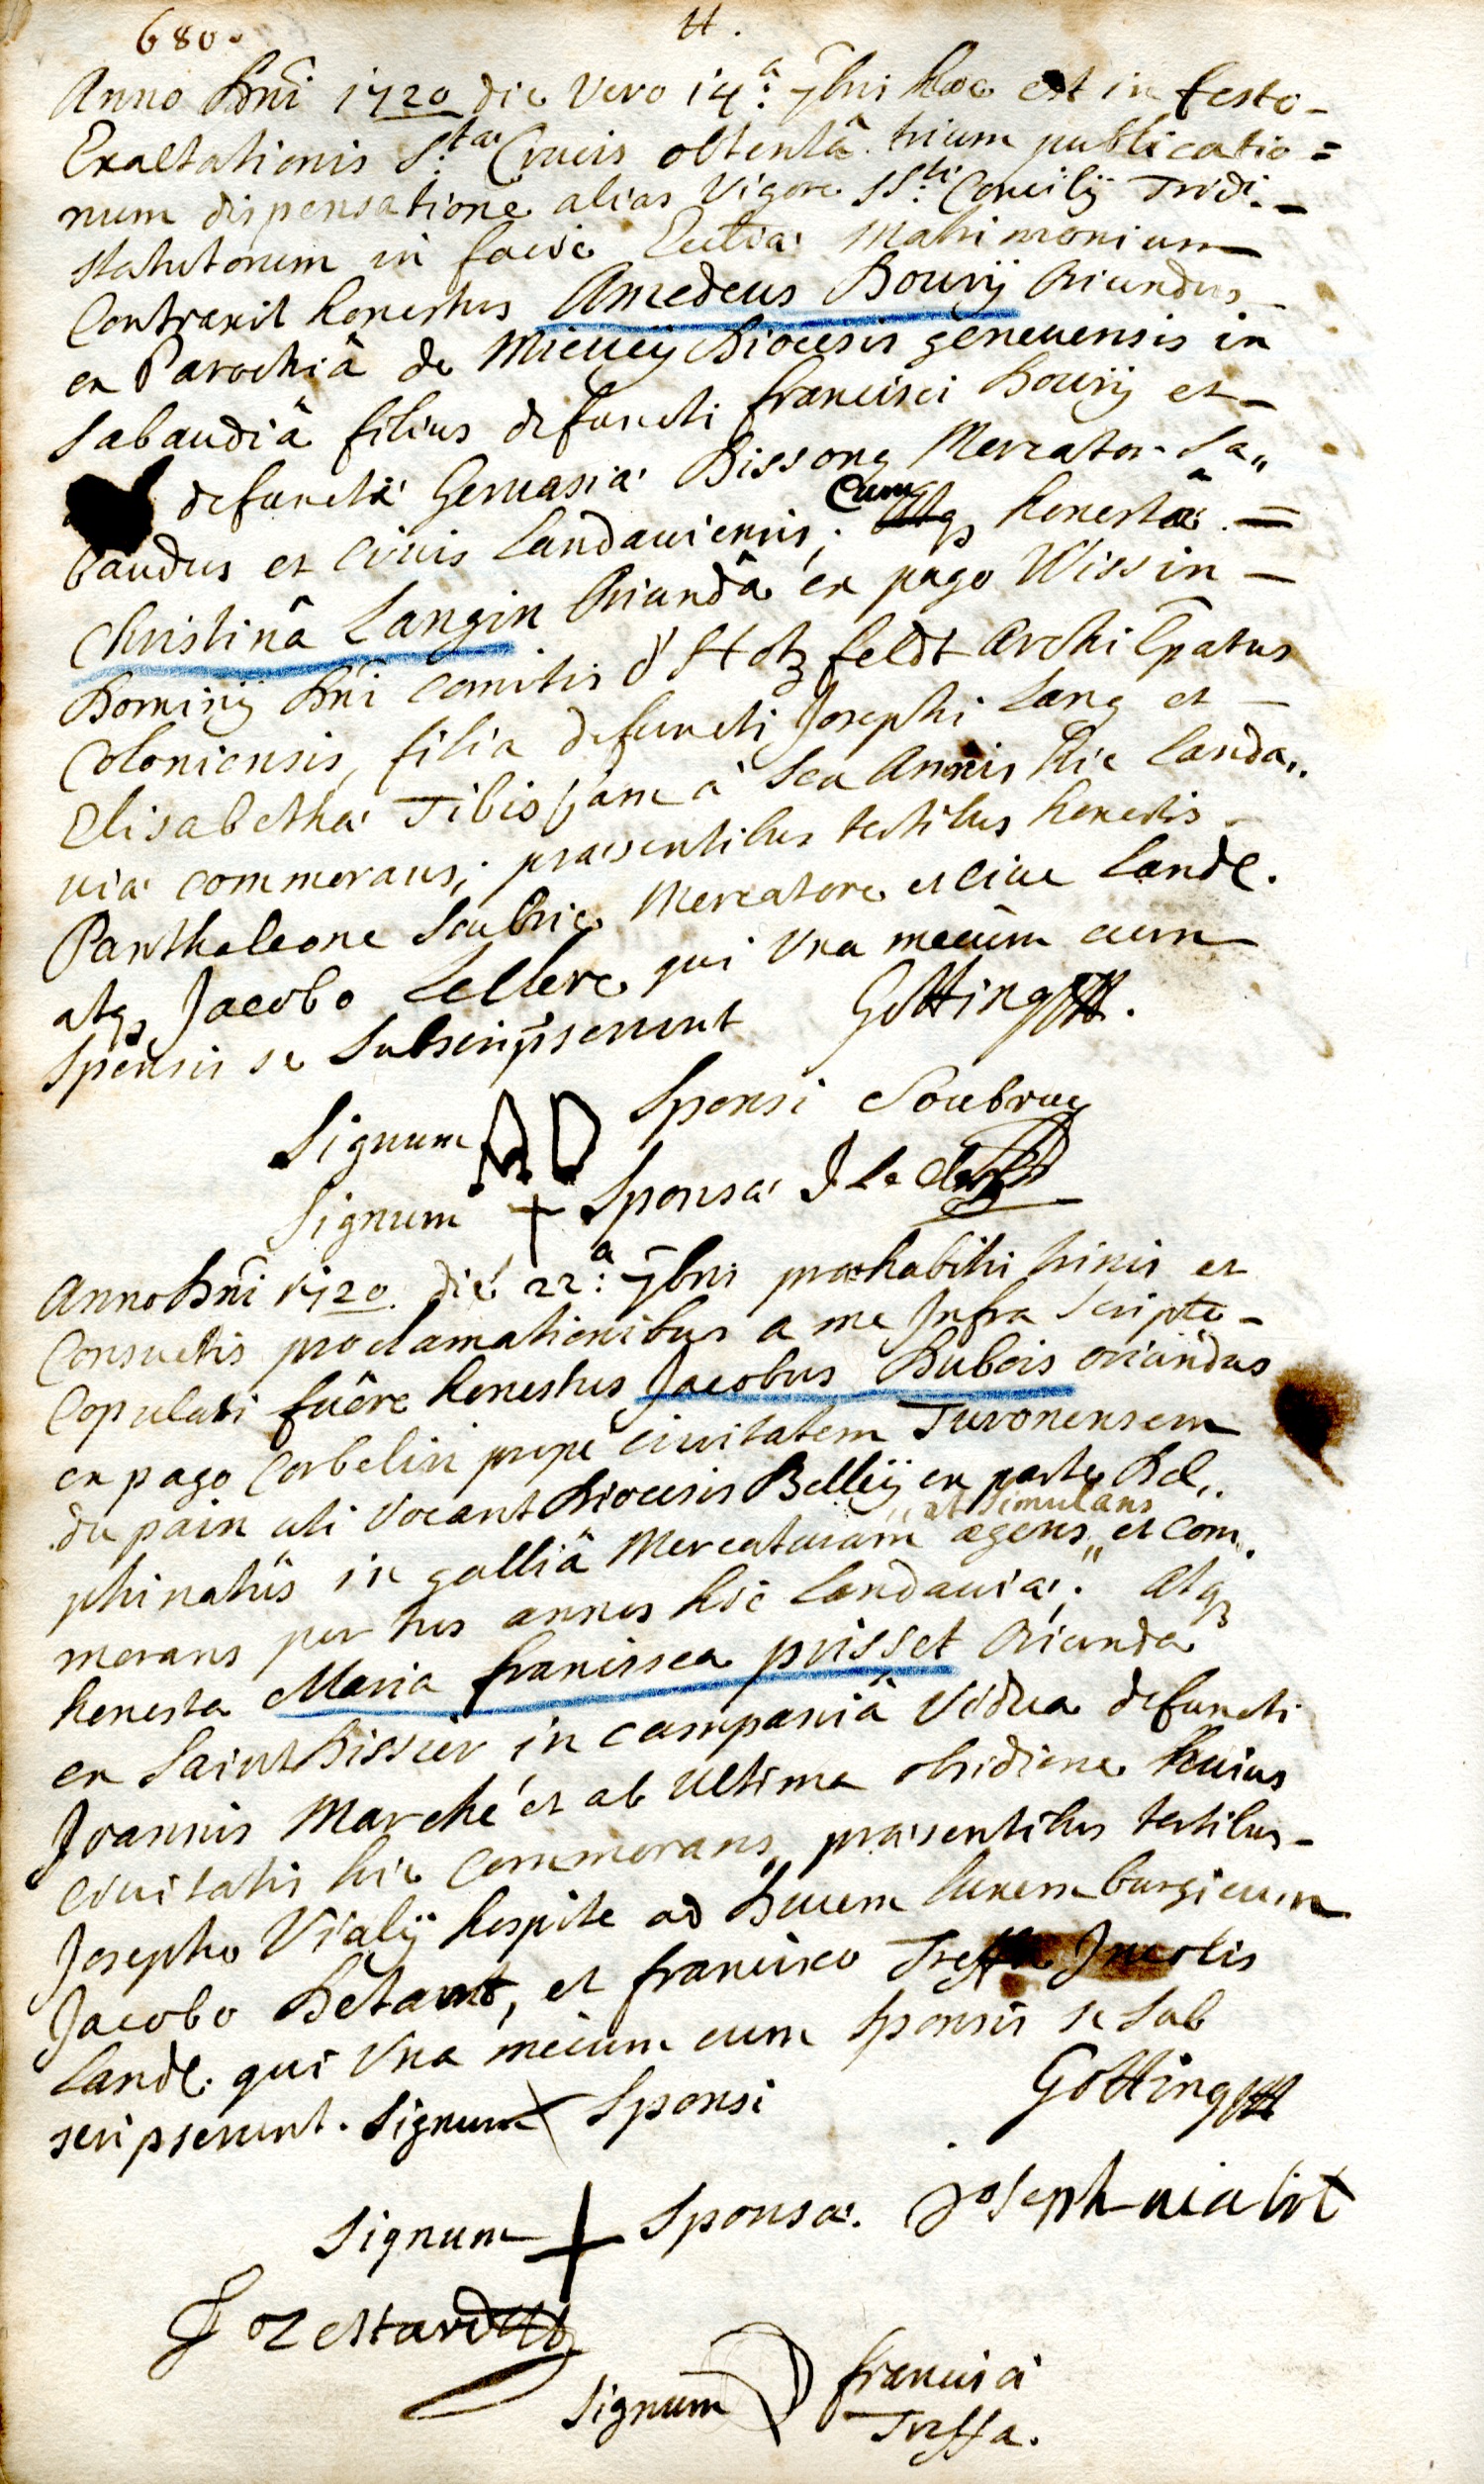 680. H.
Anno Dñi 1720 die Vero 14.a 7bris hoc est in festo-
Exaltationis S.tae Crucis obtentâ trium publicatio=
num dispensatione alias Vigore SS.ti Concilij Trid:-
statutorum in facie Eccliae Matrimonium
Contraxit honestus Amedeus Bouvij Oriundus
ex Parochiâ de Mieucij Diocesis geneuensis in
Sabaudiâ filius defuncti francisci Bouvij et-
defunctae Geruasiae Bissong Mercator Sa,,
baudus et Civis Landauiensis; Cum atq honestâ =
Christinâ Langin Oriundâ ex pago Wissin-
Dominij Dñi Comitis d'Hotzfeldt Archi Epatus
Coloniensis, filia defuncti Josephi Lang et-
Elisabethae Tibis jam a Sex Annis hic Landa,,
uiae commorans; praesentibus testibus honestis
Panthaleone Soubrie Mercatore et ciue Landl.
atq Jacobo Lellere qui Vna mecùm cum
Sponsis se Subscripserunt Gotting
Signum Sponsi Soubrug
Signum + Sponsae J Le
Anno Dñi 1720 die 22.a 7bris praehabitis trinis et
Consuetis proclamationibus a me Infra Scripto-
Copulati fuêre honestus Jacobus Dubois oriundus
ex pago Corbelin prope ciuitatem Turonensem
du pain uti vocant Diocesis Bellij ex parte Del,,
phinatûs in galliâ Mercaturam agens ,,et simulans,, et com,,
morans per tres annos hic Landauiae; Atq
honesta Maria francisca prisset Oriunda
ex Saint Dissier in campaniâ Vidua defuncti
Joannis Marché et ab ultima obsidione huius
Ciuitatis hic Commorans, praesentibus testibus-
Josepho Vialij hospite ad Ducem luxemburgicum
Jacobo Detamt, et francisco Treffa Incolis
Landl. qui Vna mecum cum sponsis se Sub
scripserunt. Signum X Sponsi Gotting
Signum + Sponsae. joseph uialit
Signum francisci
Treffa.